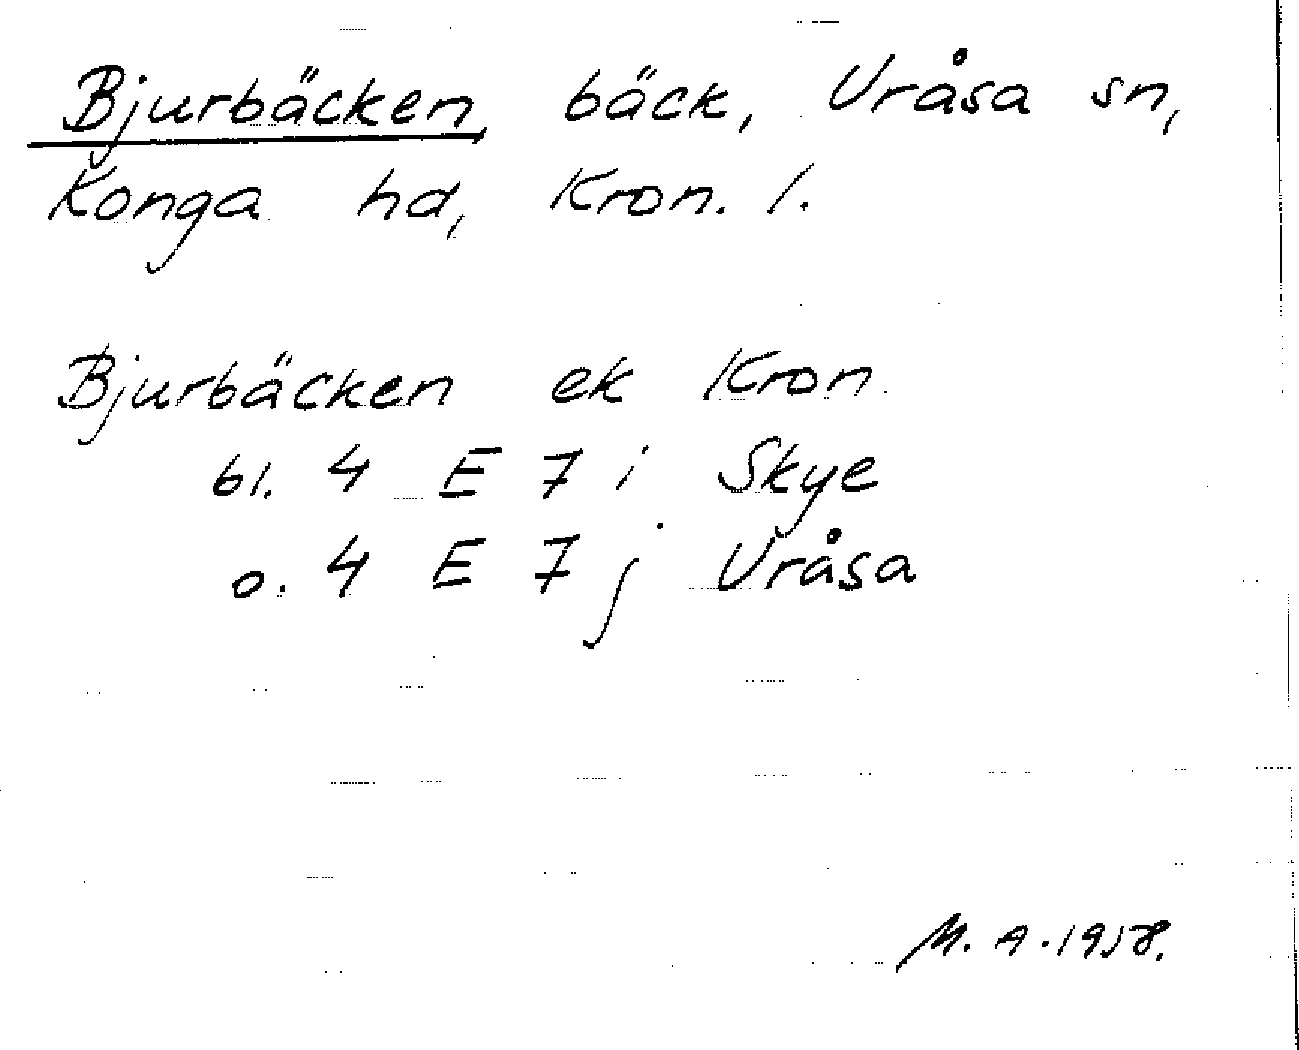 Bjurbäcken, bäck, Uråsa sn,
Konga hd, Kron. l.
Bjurbäcken ek Kron.
bl. 4 E 7 i Skye
o. 4 E 7 j Uråsa
M. A. 1958.